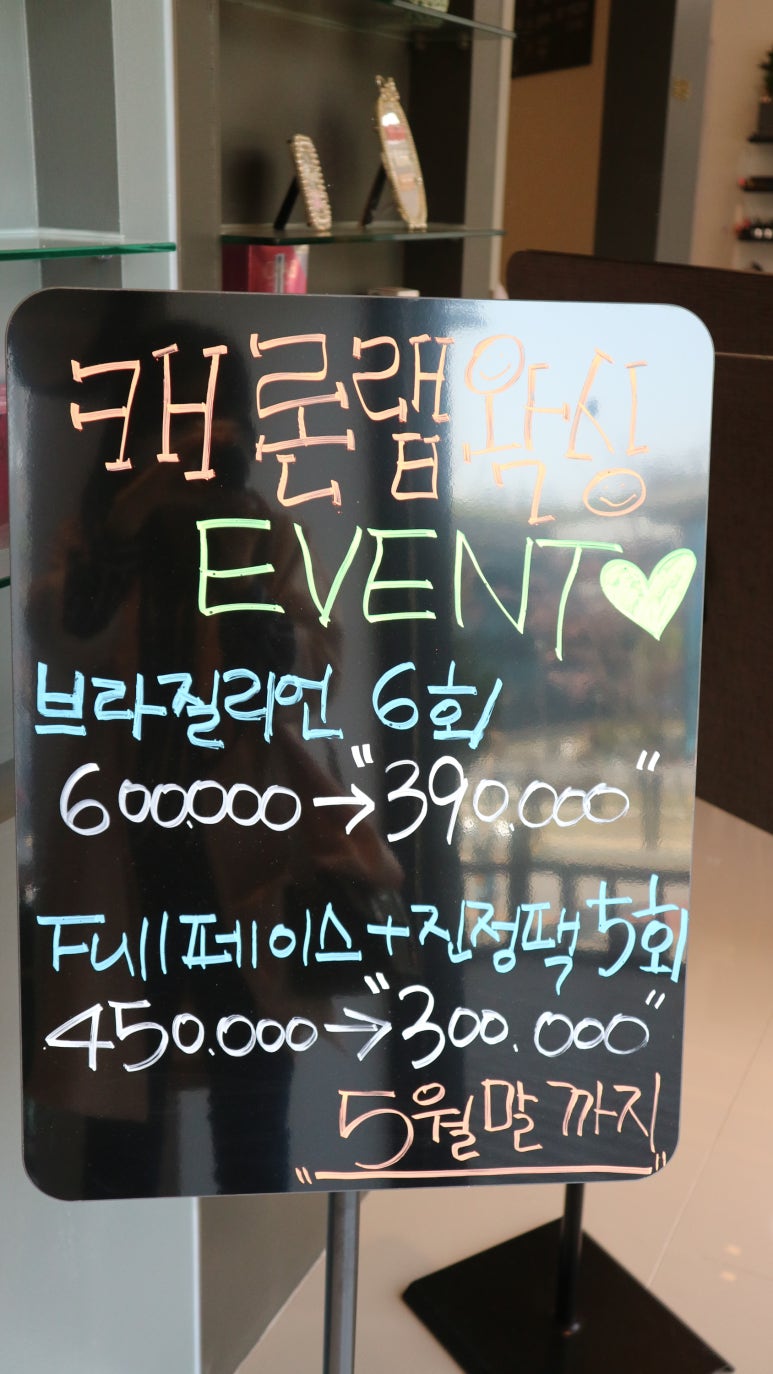 캐론랩왁싱
EVENT
브라질리언 6회
600.000→"390.000"
Full페이스+진정팩 5회
450.000→"300.000"
"5월말까지"